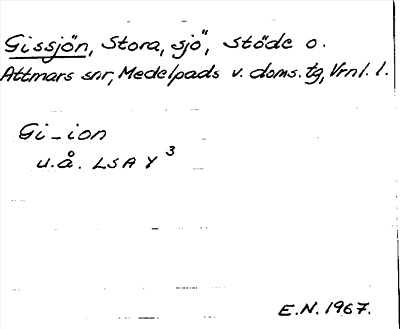 Gissjön, Stora, sjö, Stöde o.
Attmars snr, Medelpads v. doms. tg, Vrnl. l.
Gi-ion
u.å. LSA Y³
E.N. 1967.